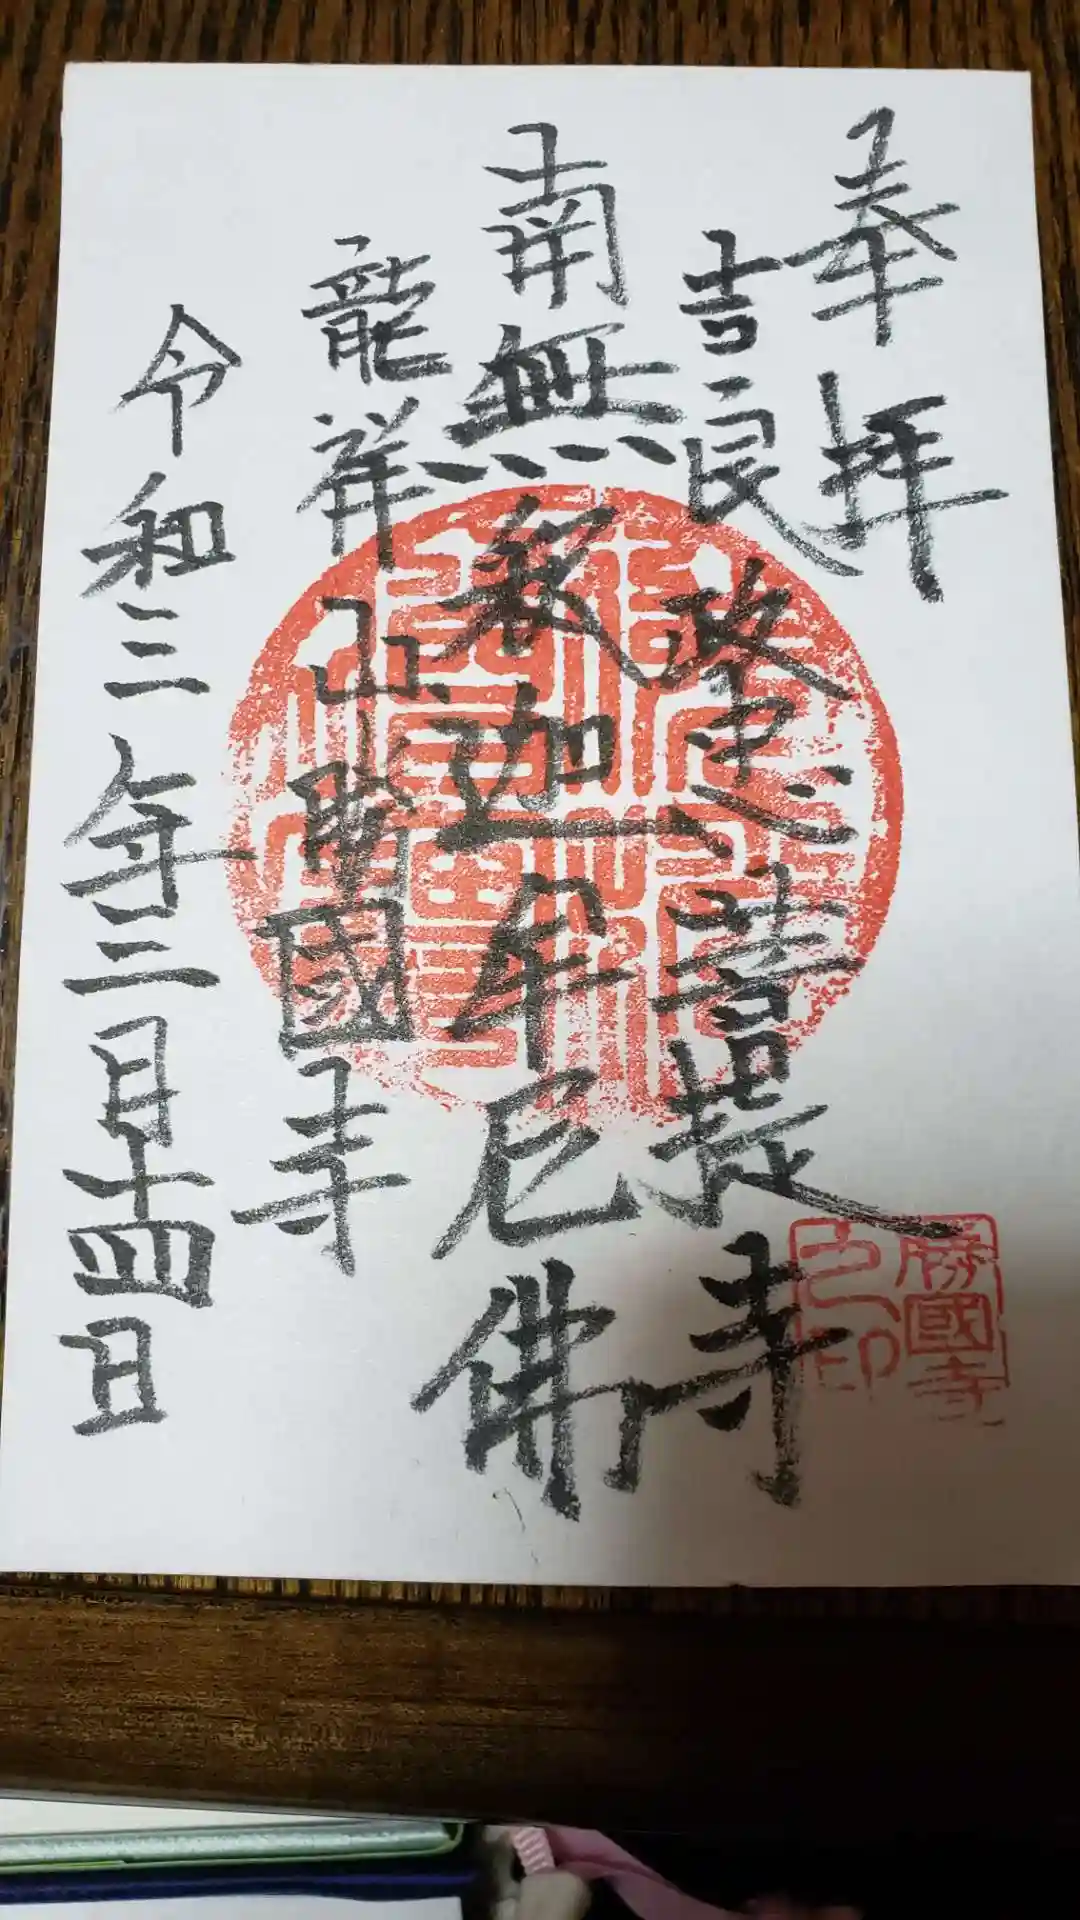 奉拝
吉良政忠菩提寺
南無釈迦牟尼佛
龍祥山勝國寺
令和三年三月十四日
勝國寺
之印